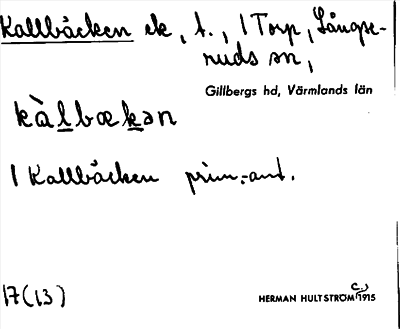 Kallbäcken ek, t., 1 Torp, Långse-
ruds sn,
Gillbergs hd, Värmlands län
kàlbækən
1 Kallbäcken prim.-ant.
17(13)
HERMAN HULTSTRÖM C.) 1915